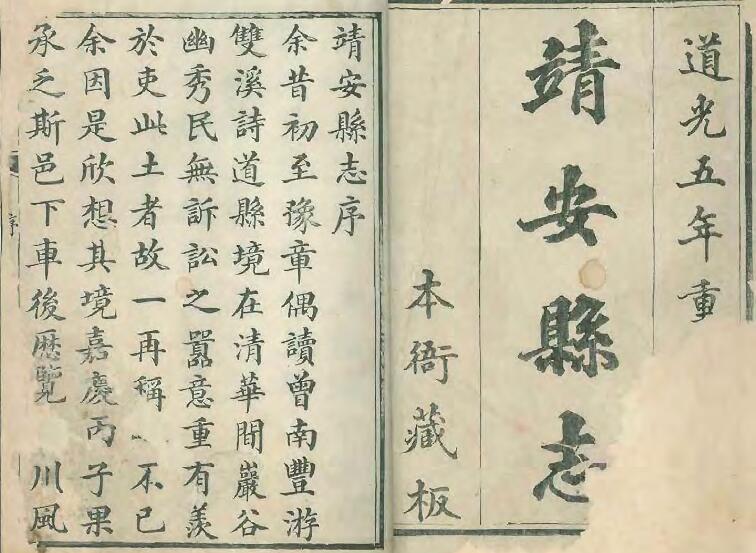 道光五年重
靖安縣志
本衙藏板
靖安縣志序
余昔初至豫章偶讀曾南豐游
雙溪詩道縣境在清華間巖谷
幽秀民無訴訟之嚚意重有羨
於吏此土者故一再稱 不已
余因是欣想其境嘉慶丙子果
承乏斯邑下車後歷覽 川風
序